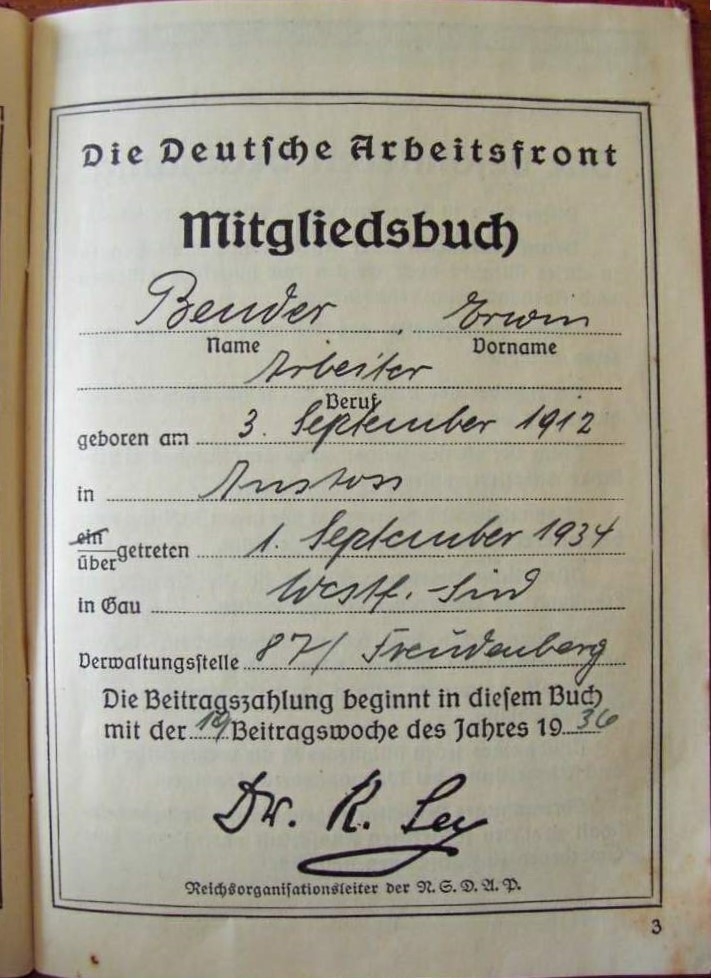 Die Deutsche Arbeitsfront
Mitgliedsbuch
Bender, Erwin
Name Vorname
Arbeiter
Beruf
geboren am 3. September 1912
in Anstoss
ein
über getreten 1. September 1934
in Gau Westf. - Süd
Verwaltungsstelle 87/ Freudenberg
Die Beitragszahlung beginnt in diesem Buch
mit der 19. Beitragswoche des Jahres 1936
Dr. R. Ley
Reichsorganisationsleiter der N.S.D.A.P.
3